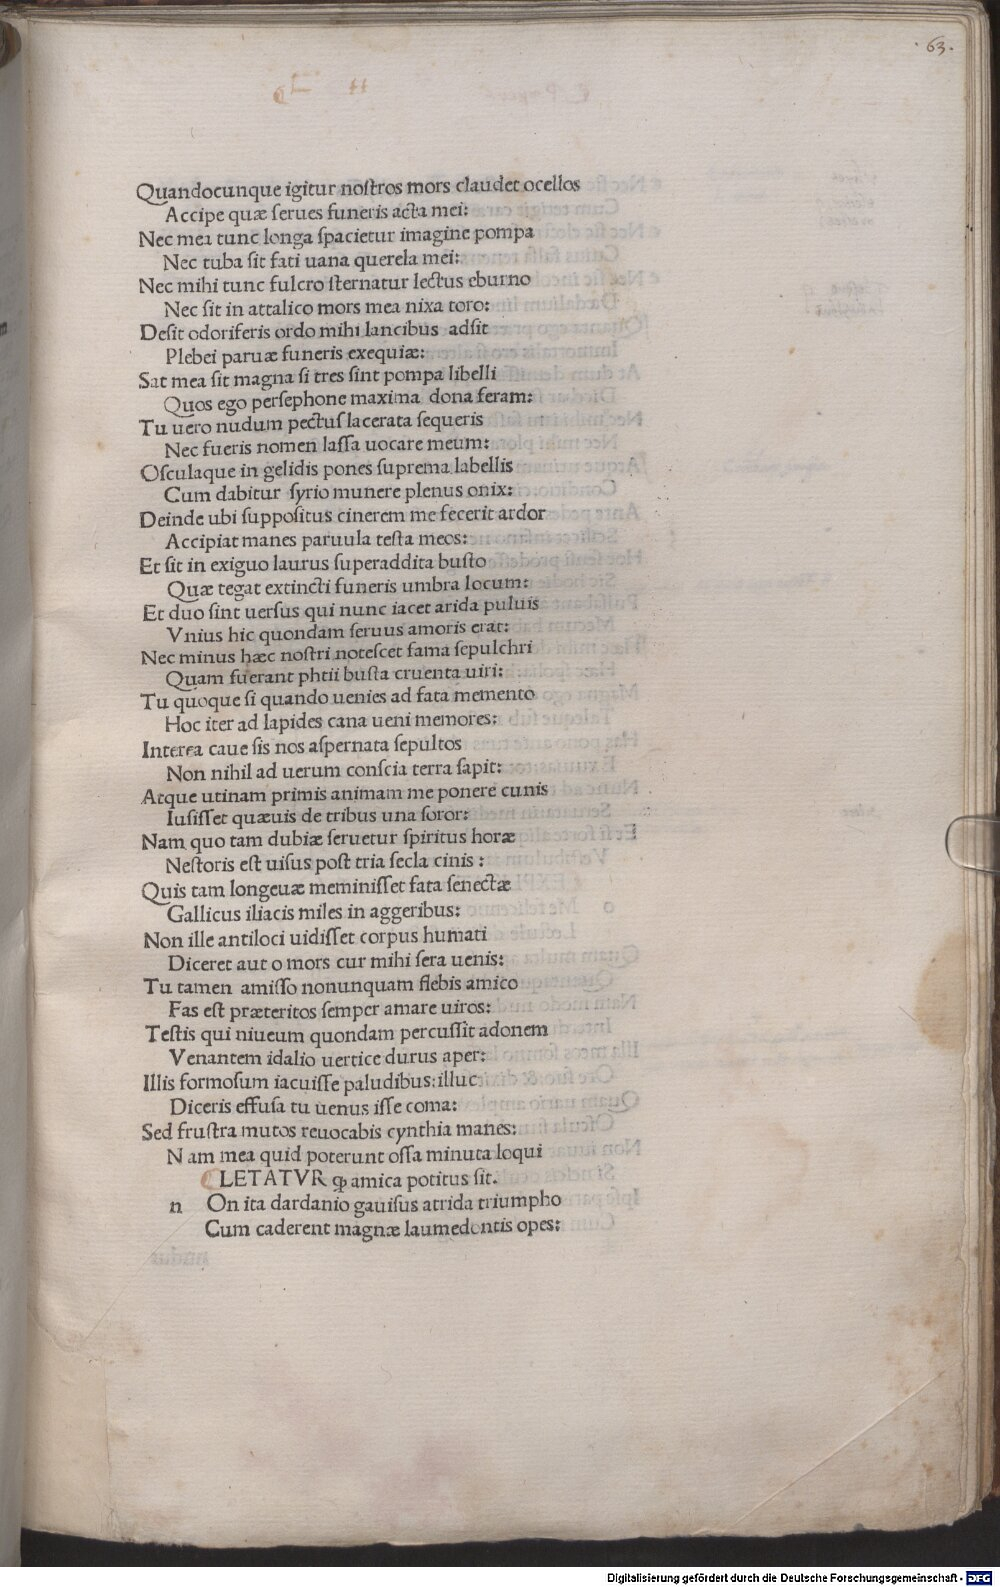 .63.
Quandocunque igitur nostros mors claudet ocellos
Accipe quæ serues funeris acta mei:
Nec mea tunc longa spacietur imagine pompa
Nec tuba sit fati uana querela mei:
Nec mihi tunc fulcro sternatur lectus eburno
Nec sit in attalico mors mea nixa toro:
Desit odoriferis ordo mihi lancibus adsit
Plebei paruæ funeris exequiæ:
Sat mea sit magna si tres sint pompa libelli
Quos ego persephone maxima dona feram:
Tu uero nudum pectus lacerata sequeris
Nec fueris nomen lassa uocare meum:
Osculaque in gelidis pones suprema labellis
Cum dabitur syrio munere plenus onix:
Deinde ubi suppositus cinerem me fecerit ardor
Accipiat manes paruula testa meos:
Et sit in exiguo laurus superaddita busto
Quæ tegat extincti funeris umbra locum:
Et duo sint uersus qui nunc iacet arida puluis
Vnius hic quondam seruus amoris erat:
Nec minus hæc nostri notescet fama sepulchri
Quam fuerant phtii busta cruenta uiri:
Tu quoque si quando uenies ad fata memento
Hoc iter ad lapides cana ueni memores:
Interea caue sis nos aspernata sepultos
Non nihil ad uerum conscia terra sapit:
Atque utinam primis animam me ponere cunis
Iusisset quæuis de tribus una soror:
Nam quo tam dubiæ seruetur spiritus horæ
Nestoris est uisus post tria secla cinis :
Quis tam longeuæ meminisset fata senectæ
Gallicus iliacis miles in aggeribus:
Non ille antiloci uidisset corpus humati
Diceret aut o mors cur mihi sera uenis:
Tu tamen amisso nonunquam flebis amico
Fas est præteritos semper amare uiros:
Testis qui niueum quondam percussit adonem
Venantem idalio uertice durus aper:
Illis formosum iacuisse paludibus: illuc
Diceris effusa tu uenus isse coma:
Sed frustra mutos reuocabis cynthia manes:
Nam mea quid poterunt ossa minuta loqui
LETATVR ꝙ amica potitus sit.
n On ita dardanio gauisus atrida triumpho
Cum caderent magnæ laumedontis opes:
Digitalisierung gefördert durch die Deutsche Forschungsgemeinschaft - DFG